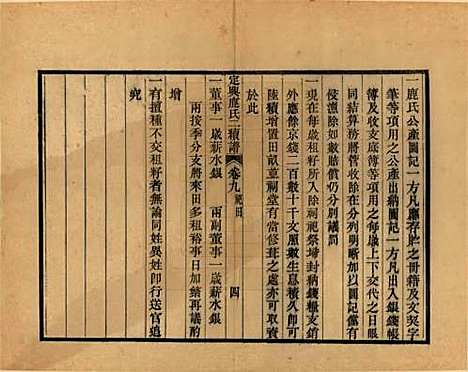 一鹿氏公產圖記一方凡應存貯之冊籍及文契字
筆等項用之公產出納圖記一方凡出入銀錢帳
簿及收支底簿等項用之每歲上下交代之日眼
同結算務將管收除在分列明晰加以圖記如有
侵漁除如數賠償仍分別議罰
一現在每歲租籽所入除祠祭墳封納錢糧支銷
外應餘京錢二百數十千文照數生息積久卽可
陸續增置田畝並祠堂有當修葺之處亦可取資
於此
定興鹿氏二續譜
卷九 祀田
四
一董事一歲薪水銀 兩副董事一歲薪水銀
兩按季分支將來田多租裕事日加繁再議酌
增
一有擅種不交租籽者無論同姓異姓卽行送官追
究